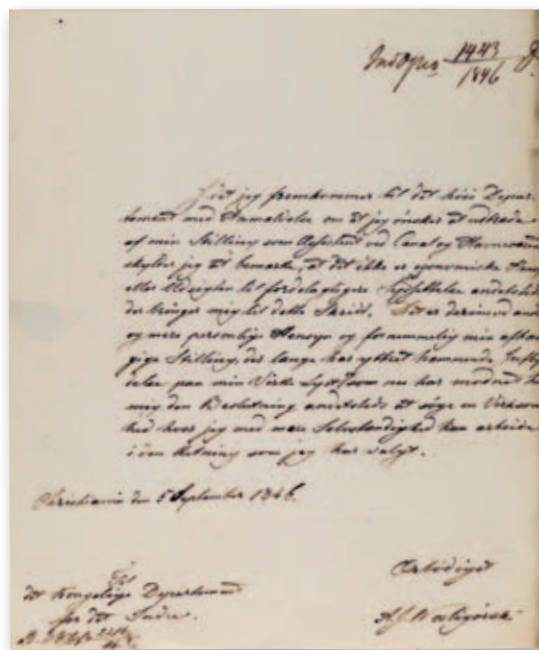 1443
1846
Idet jeg fremkommer til det høie Depar-
tement med Anmeldelse om at jeg ønsker at udtræde
af min Stilling som Assistent ved Canal og Havnevæsenet
skylder jeg at bemærke, at det ikke er oeconomiske Hensyn
eller Udsigten til fordelagtigere Ansættelse andetsteds
der bringer mig til dette Skridt. Det er derimod andre
og mere personlige Hensyn og fornemmelig min afhæn-
gige Stilling, der længe har yttret hæmmende Indfly-
delse paa min Virke Lyst som nu har modnet hos
mig den Beslutning andetsteds at søge en Virksom-
hed hvor jeg med mere Selvstændighed kan arbeide
i den Retning som jeg har valgt.
Christiania den 5 September 1846.
Til
det Kongelige Departement
for det Indre.
Ærbødigst